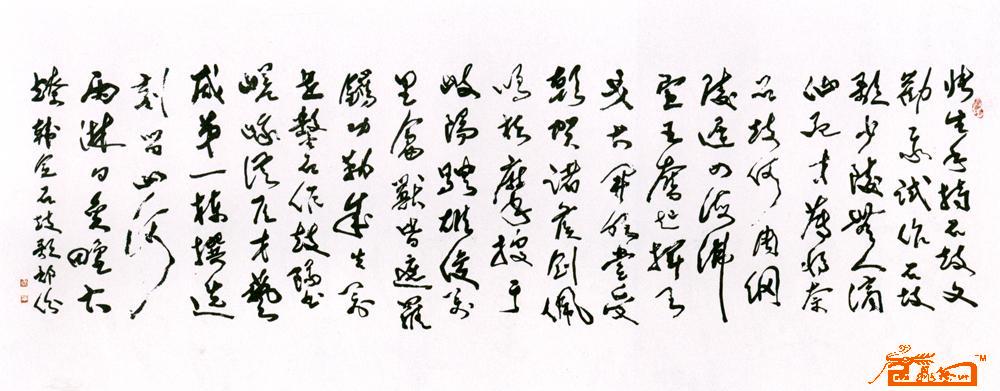 張生手持石鼓文
勸我試作石鼓
歌少陵無人謫
仙死才薄將奈
石鼓何周綱
陵遲四海沸
宣王憤起揮天
戈大開明堂受
朝賀諸侯劍佩
鳴相磨搜于
岐陽騁雄俊萬
里禽獸皆遮羅
鐫功勒成告萬
世鑿石作鼓隳
嵯峨從臣才藝
咸第一揀撰選
刻留山阿
雨淋日炙野火
燎 石鼓歌